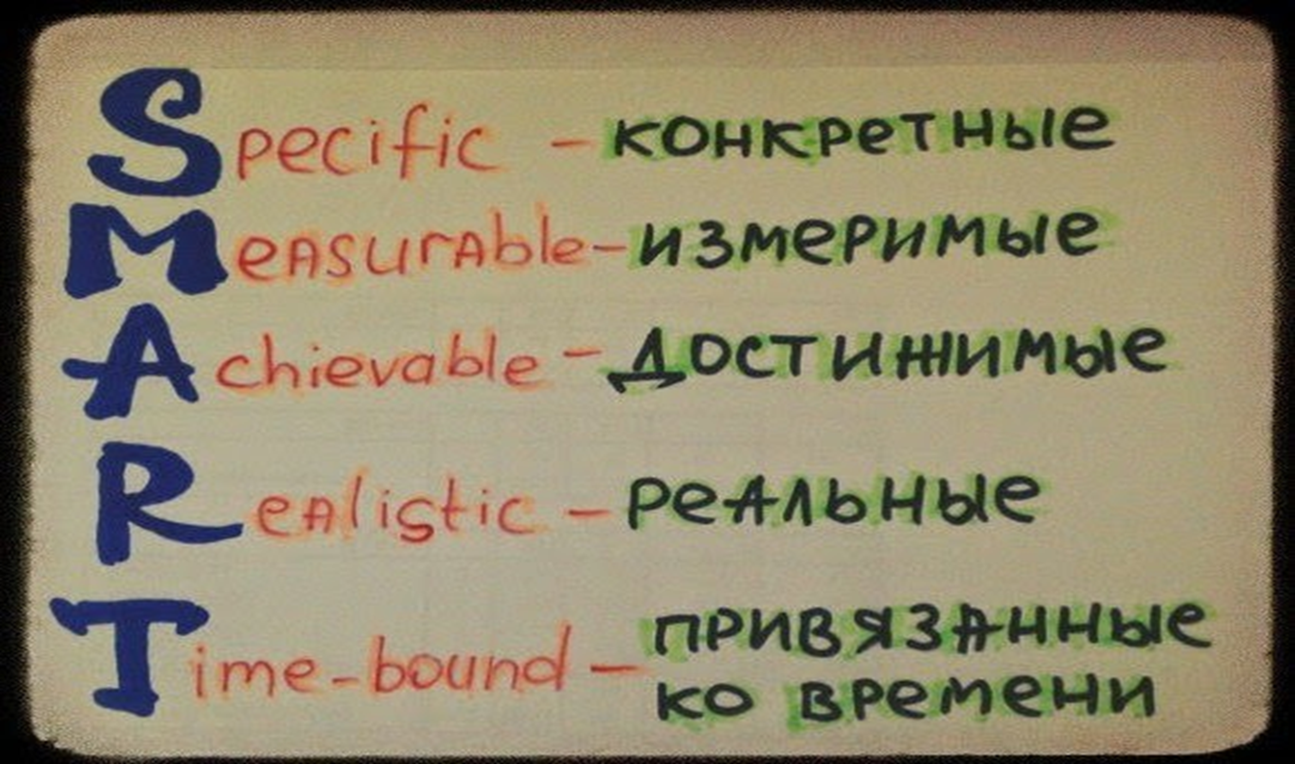 Specific - конкретные
Measurable - измеримые
Achievable - достижимые
Realistic - реальные
Time-bound - привязанные
ко времени